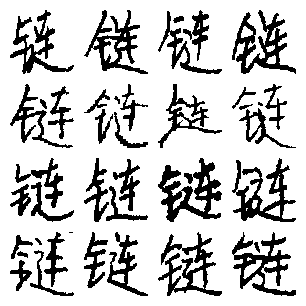 链链链链
链链链链
链链链链
链链链链